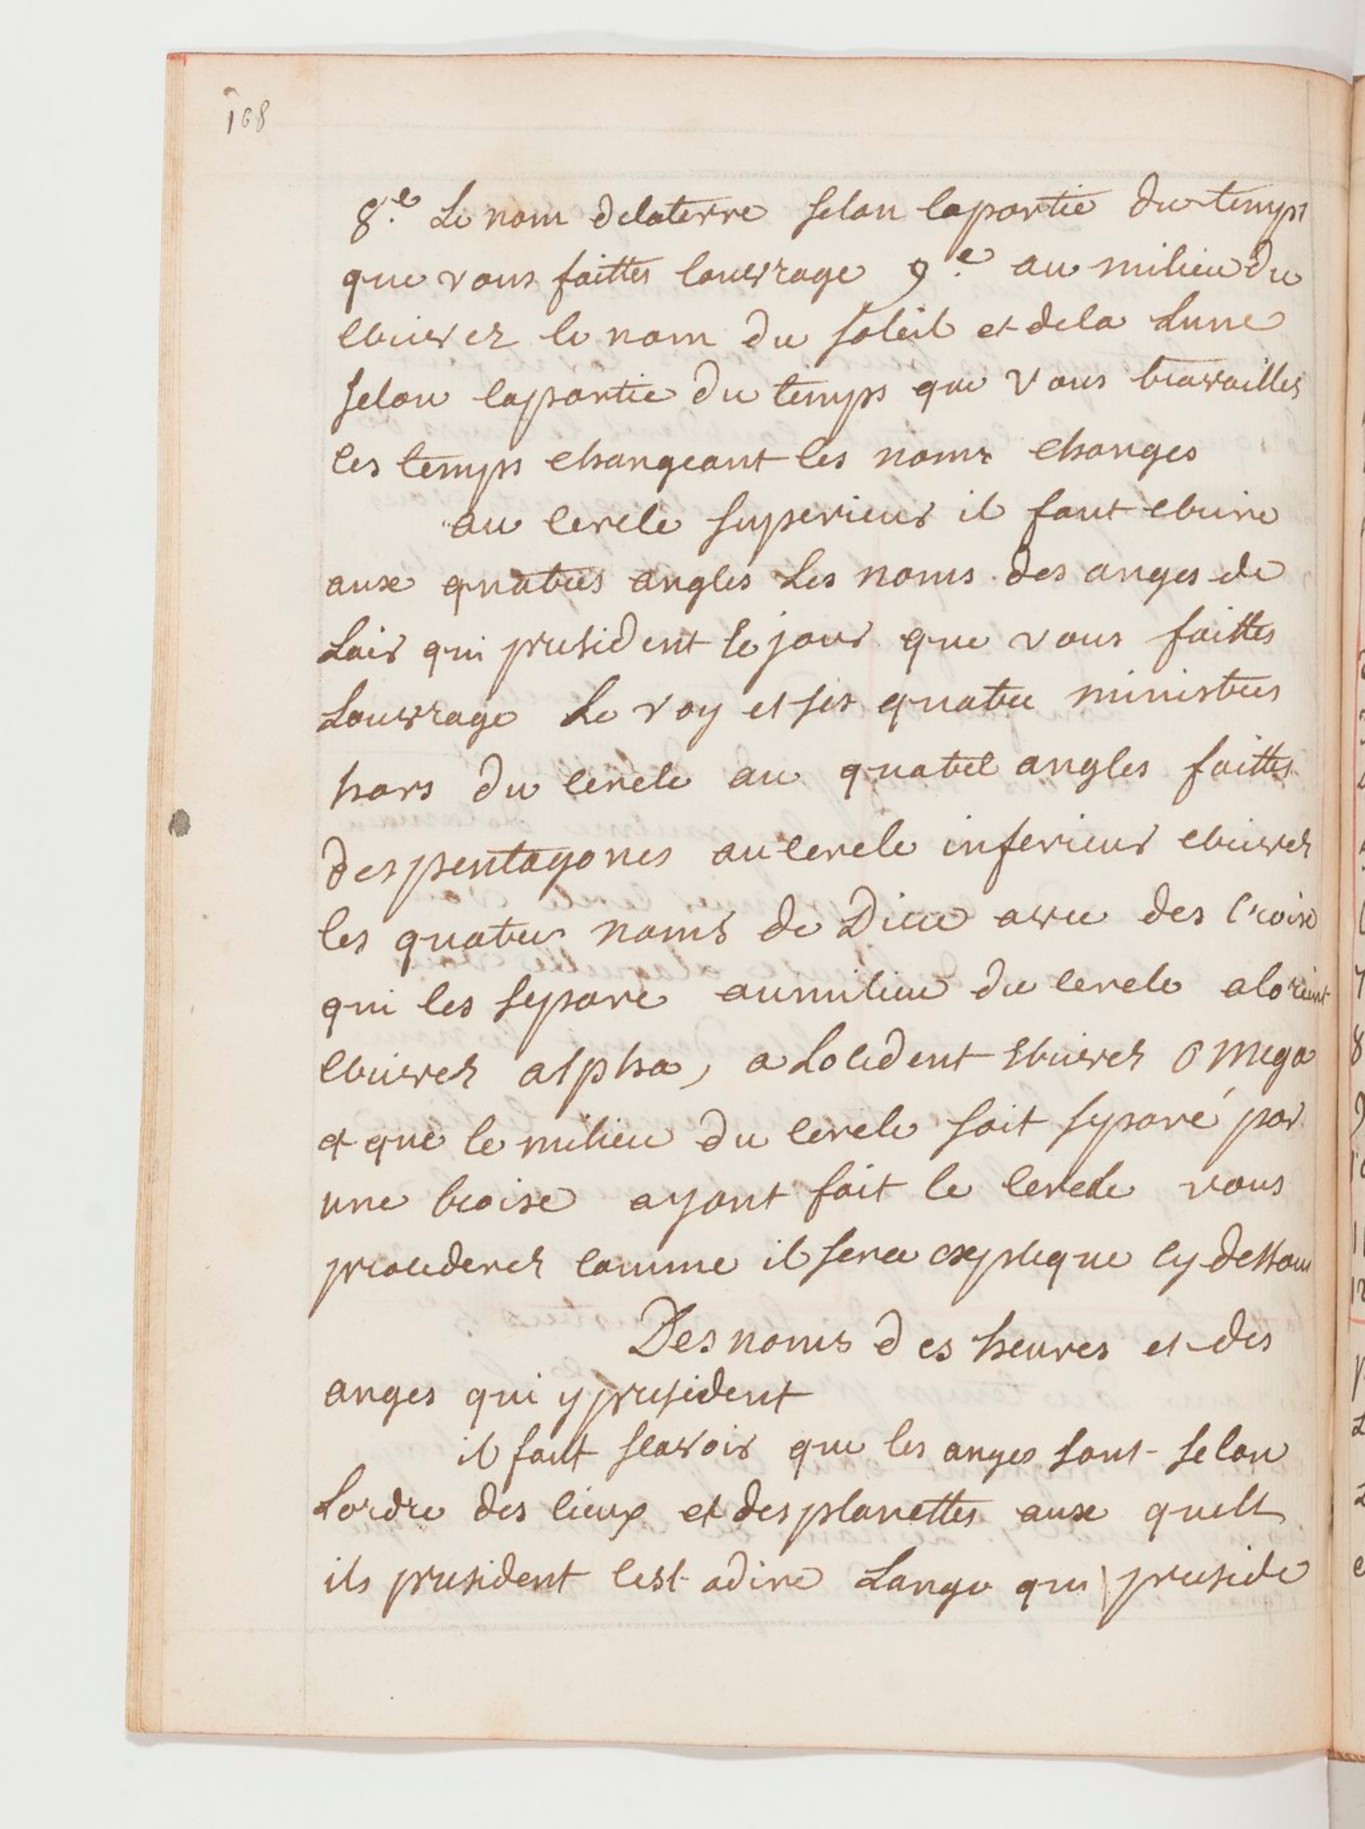 168
8.e Le nom delaterre selon lapartie du temps
que vous faittes louvrage 9.e au milieu du
ecrivez le nom du soleil et dela Lune
selon lapartie du temps que vous travailles
les temps changeant les noms changes
au cercle superieur il faut ecrire
aux quatres angles Les noms des anges de
Lair qui president le jour que vous faittes
Louvrage Le roy et ses quatre ministres
hors du cercle au quatre angles faittes
des pentagones au cercle inferieur ecrivez
les quatre noms de Dieu avec des Croix
qui les separe aumilieu du cercle alorient
ecrivez alpha, a Locident ecrivez omega
et que le milieu du cercle soit separé par
une croix ayant fait le cercle vous
procederez comme il sera explique cy dessous
Des noms des heures et des
anges qui y president
il faut scavoir que les anges sont selon
Lordre des lieux et des planettes aux quels
ils president cest adire Lange qui preside